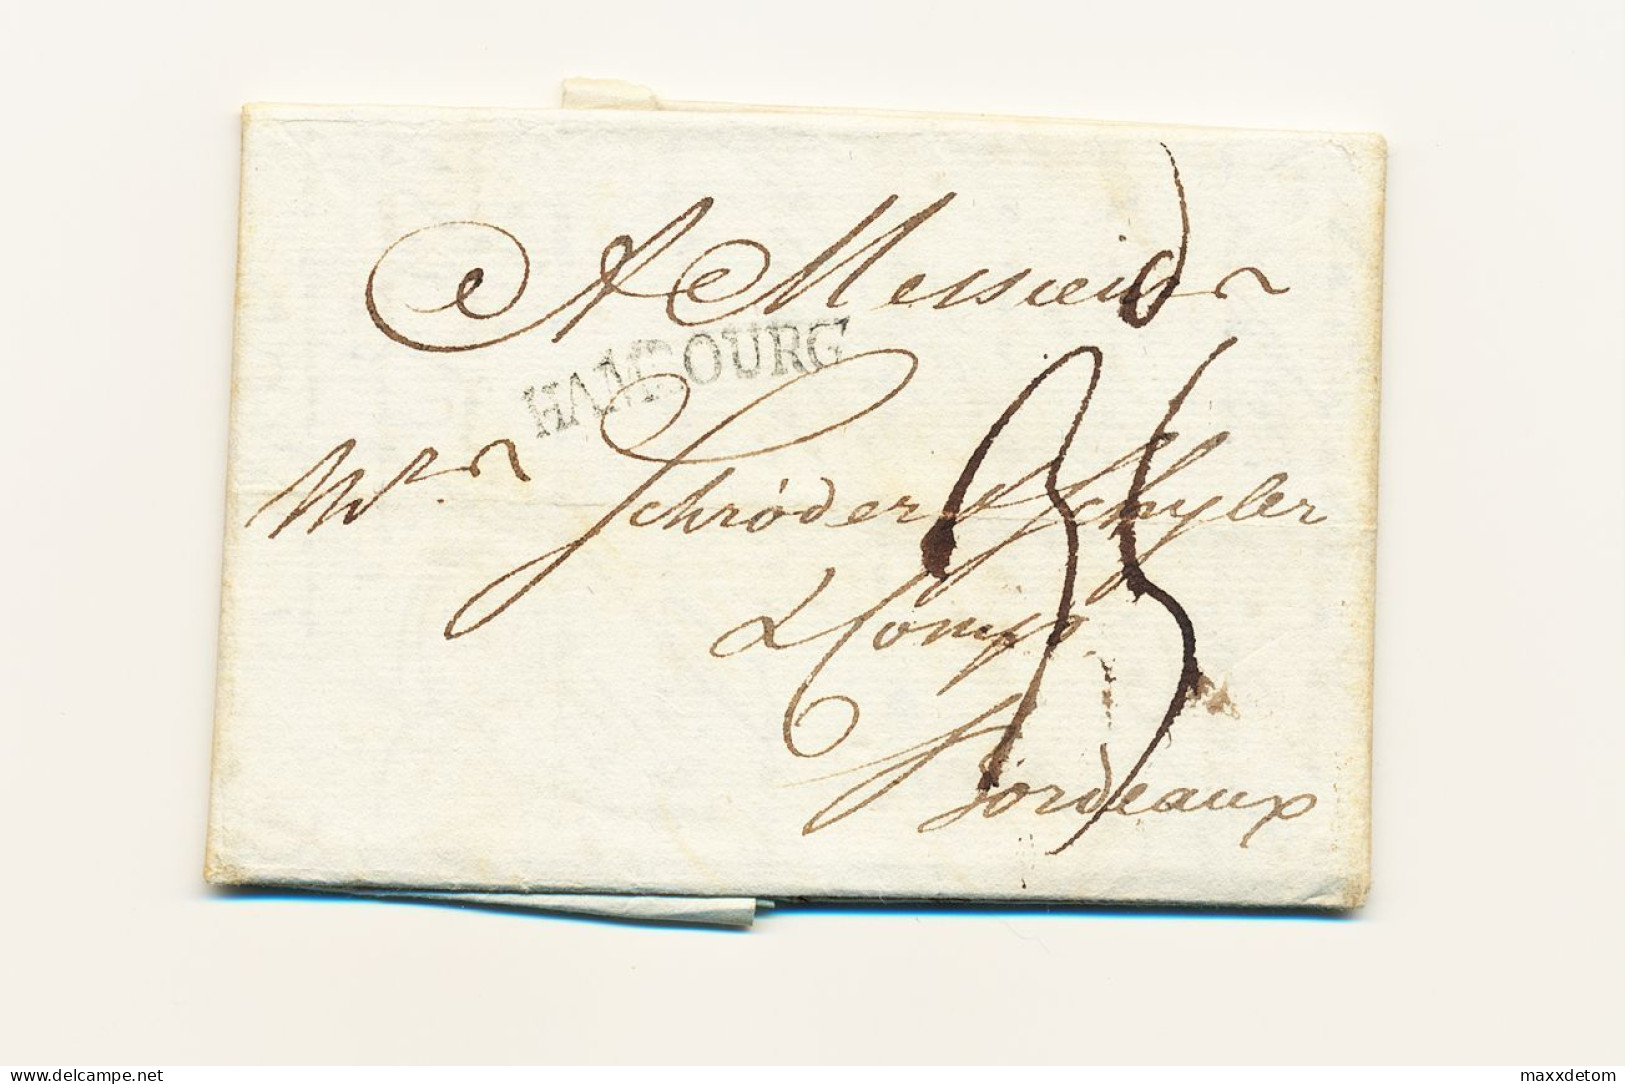 A Messieurs
HAMBOURG
Mrs Schröder & Schyler
& Comp.
35
Bordeaux
www.delcampe.net
maxxdetom